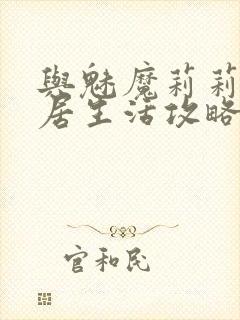 與魅魔莉莉
居生活攻略
官和民